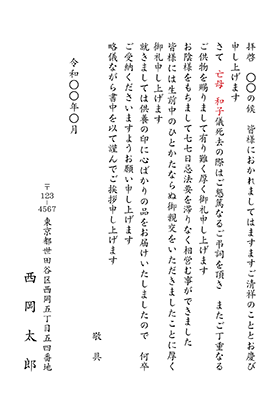 拝啓　〇〇の候　皆様におかれましてはますますご清祥のこととお慶び
申し上げます
さて　亡母　和子儀死去の際はご懇篤なるご弔詞を頂き　またご丁重なる
ご供物を賜りまして有り難く厚く御礼申し上げます
お陰様をもちまして七七日忌法要を滞りなく相営む事ができました
皆様には生前中のひとかたならぬ御親交をいただきましたことに厚く
御礼申し上げます
就きましては供養の印に心ばかりの品をお届けいたしましたので　何卒
ご受納くださいますようお願い申し上げます
略儀ながら書中を以て謹んでご挨拶申し上げます
敬具
令和〇〇年〇月
〒123-4567
東京都世田谷区西岡五丁目五四番地
西岡太郎